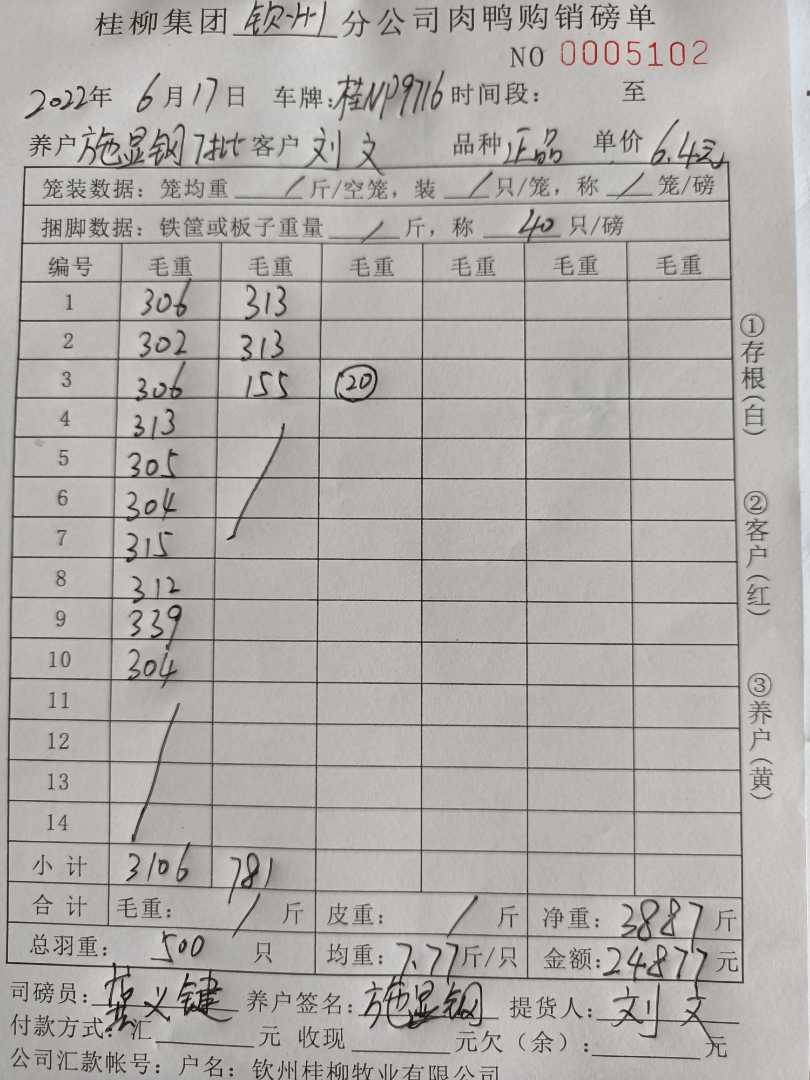 桂柳集团钦州分公司肉鸭购销磅单
NO 0005102
2022年 6月17日 车牌:桂NP9716时间段: 至
养户施显钢7批客户刘文 品种正品 单价6.4元
笼装数据: 笼均重 / 斤/空笼, 装 / 只/笼, 称 / 笼/磅
捆脚数据: 铁筐或板子重量 / 斤, 称 40 只/磅
编号 毛重 毛重 毛重 毛重 毛重 毛重
1 306 313
2 302 313
3 306 155 20
4 313
5 305
6 304
7 315
8 312
9 339
10 304
11
12
13
14
小计 3106 781
合计 毛重: / 斤 皮重: / 斤 净重: 3887斤
总羽重: 500 只 均重: 7.77斤/只 金额:24877元
司磅员: 义键 养户签名: 施显钢 提货人: 刘文
付款方式: 汇 元 收现 元欠(余): 元
公司汇款帐号: 户名: 钦州桂柳牧业有限公司
①存根(白)
②客户(红)
③养户(黄)